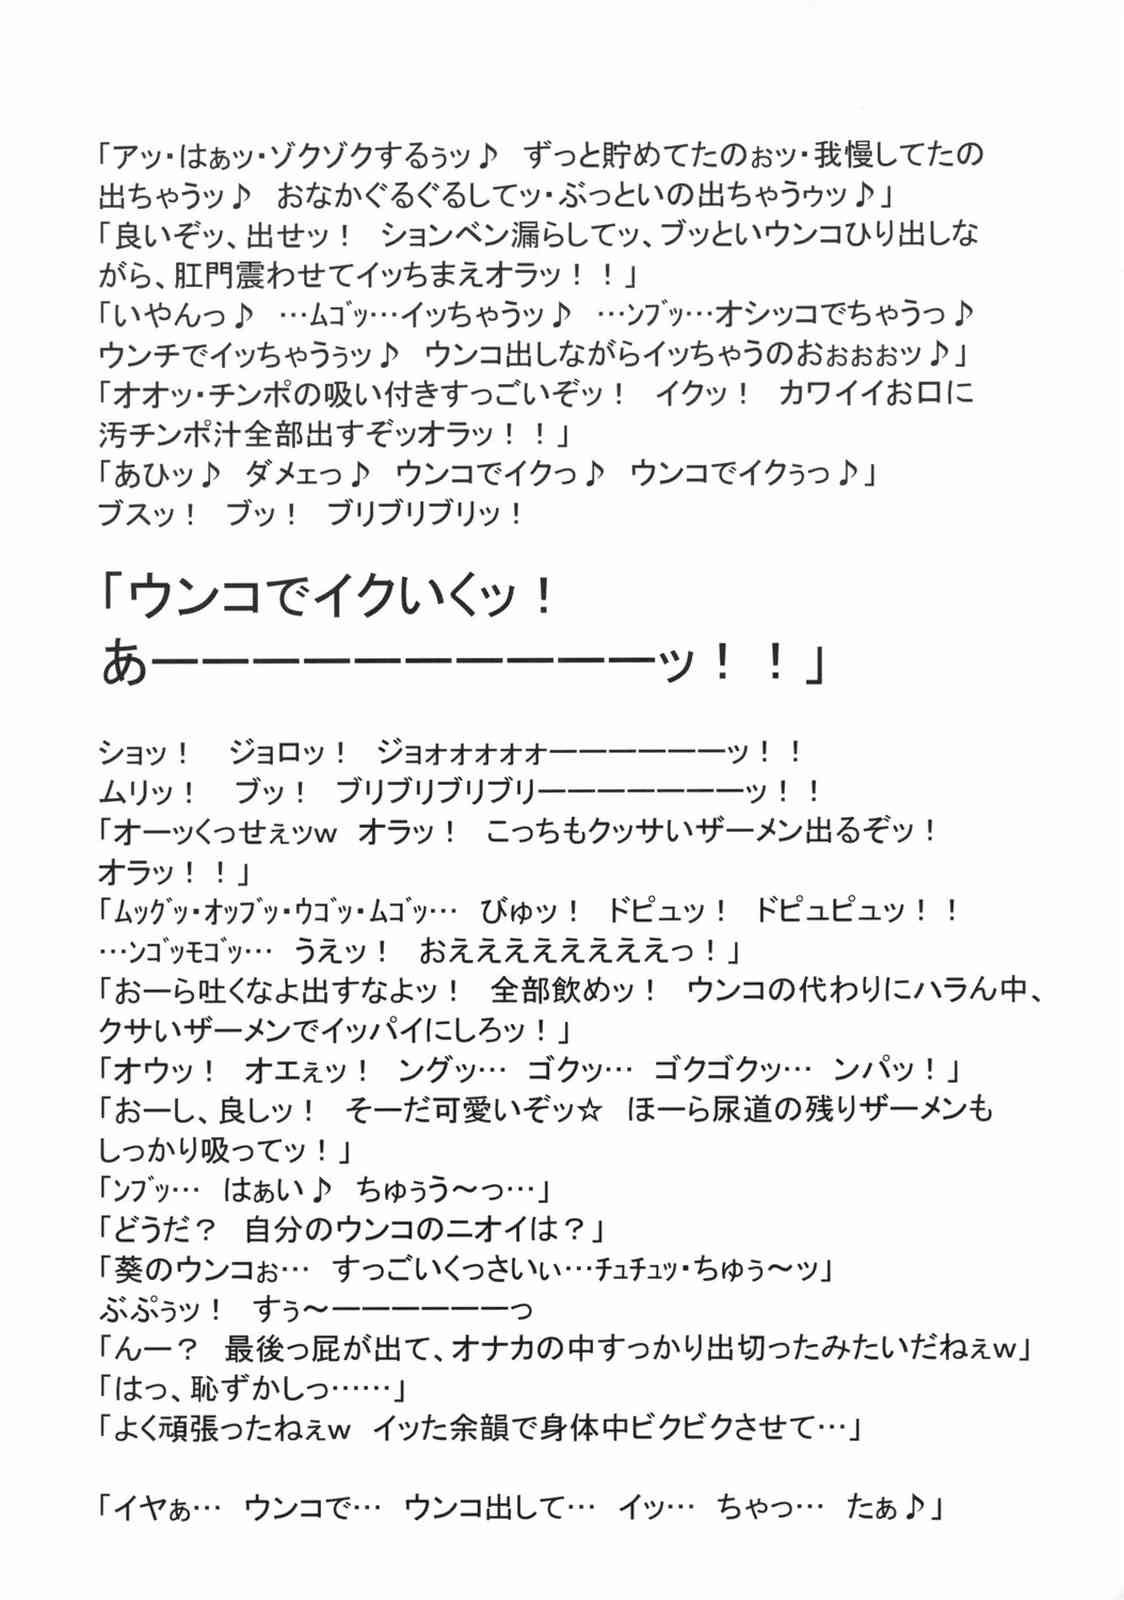 「アッ・はぁッ・ゾクゾクするぅッ♪　ずっと貯めてたのぉッ・我慢してたの
出ちゃうッ♪　おなかぐるぐるしてッ・ぶっといの出ちゃうゥッ♪」
「良いぞッ、出せッ！　ションベン漏らしてッ、ブッといウンコひり出しな
がら、肛門震わせてイッちまえオラッ！！」
「いやんっ♪　…ﾑｺﾞｯ…イッちゃうッ♪　…ﾝﾌﾞｯ…オシッコでちゃうっ♪
ウンチでイッちゃうぅッ♪　ウンコ出しながらイッちゃうのおぉぉぉッ♪」
「オオッ・チンポの吸い付きすっごいぞッ！　イクッ！　カワイイお口に
汚チンポ汁全部出すぞッオラッ！！」
「あひッ♪　ダメェっ♪　ウンコでイクっ♪　ウンコでイクぅっ♪」
ブスッ！　ブッ！　ブリブリブリッ！
「ウンコでイクいくッ！
あーーーーーーーーーーーッ！！」
ショッ！　ジョロッ！　ジョォォォォォーーーーーーッ！！
ムリッ！　ブッ！　ブリブリブリブリーーーーーーーッ！！
「オーッくっせぇッｗ　オラッ！　こっちもクッサいザーメン出るぞッ！
オラッ！！」
「ﾑｯｸﾞｯ・ｵｯﾌﾞｯ・ｳｺﾞｯ・ﾑｺﾞｯ…　びゅッ！　ドピュッ！　ドピュピュッ！！
…ﾝｺﾞｯﾓｺﾞｯ…　うえッ！　おええええええええっ！」
「おーら吐くなよ出すなよッ！　全部飲めッ！　ウンコの代わりにハラん中、
クサいザーメンでイッパイにしろッ！」
「オウッ！　オエぇッ！　ングッ…　ゴクッ…　ゴクゴクッ…　ンパッ！」
「おーし、良しッ！　そーだ可愛いぞッ☆　ほーら尿道の残りザーメンも
しっかり吸ってッ！」
「ﾝﾌﾞｯ…　はぁい♪　ちゅぅう～っ…」
「どうだ？　自分のウンコのニオイは？」
「葵のウンコぉ…　すっごいくっさいぃ…ﾁｭﾁｭｯ・ちゅぅ～ッ」
ぶぷぅッ！　すぅ～ーーーーーーっ
「んー？　最後っ屁が出て、オナカの中すっかり出切ったみたいだねぇｗ」
「はっ、恥ずかしっ……」
「よく頑張ったねぇｗ　イッた余韻で身体中ビクビクさせて…」
「イヤぁ…　ウンコで…　ウンコ出して…　イッ…　ちゃっ…　たぁ♪」